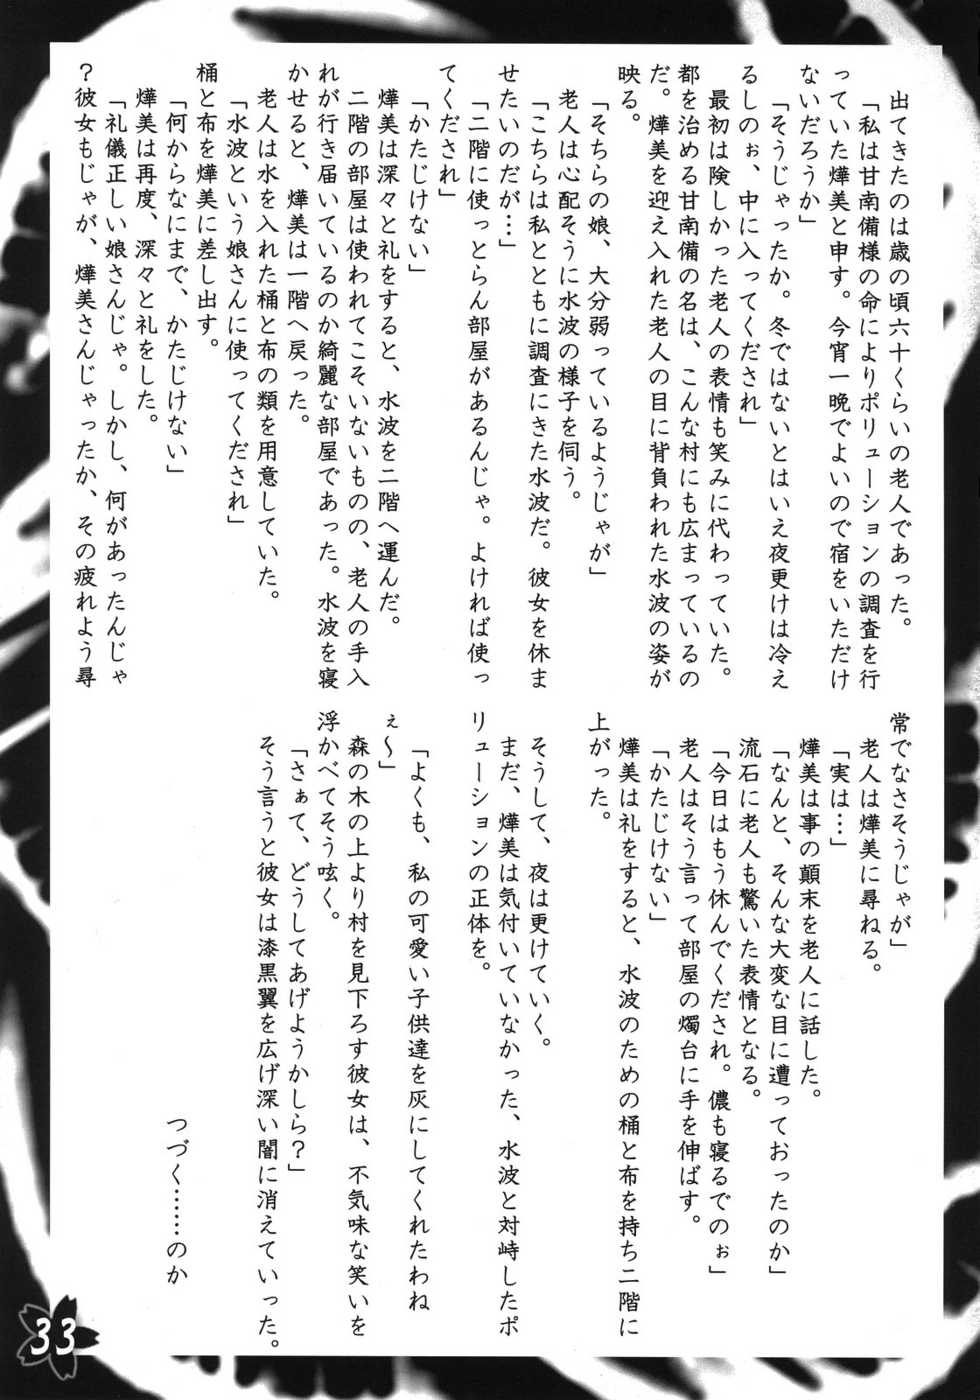 出てきたのは歳の頃六十くらいの老人であった。
「私は甘南備様の命によりポリューションの調査を行
っていた燁美と申す。今宵一晩でよいので宿をいただけ
ないだろうか」
「そうじゃったか。冬ではないとはいえ夜更けは冷え
るしのぉ、中に入ってくだされ」
最初は険しかった老人の表情も笑みに代わっていた。
都を治める甘南備の名は、こんな村にも広まっているの
だ。燁美を迎え入れた老人の目に背負われた水波の姿が
映る。
「そちらの娘、大分弱っているようじゃが」
老人は心配そうに水波の様子を伺う。
「こちらは私とともに調査にきた水波だ。彼女を休ま
せたいのだが…」
「二階に使っとらん部屋があるんじゃ。よければ使っ
てくだされ」
「かたじけない」
燁美は深々と礼をすると、水波を二階へ運んだ。
二階の部屋は使われてこそいないものの、老人の手入
れが行き届いているのか綺麗な部屋であった。水波を寝
かせると、燁美は一階へ戻った。
老人は水を入れた桶と布の類を用意していた。
「水波という娘さんに使ってくだされ」
桶と布を燁美に差し出す。
「何からなにまで、かたじけない」
燁美は再度、深々と礼をした。
「礼儀正しい娘さんじゃ。しかし、何があったんじゃ
？彼女もじゃが、燁美さんじゃったか、その疲れよう尋
常でなさそうじゃが」
老人は燁美に尋ねる。
「実は…」
燁美は事の顛末を老人に話した。
「なんと、そんな大変な目に遭っておったのか」
流石に老人も驚いた表情となる。
「今日はもう休んでくだされ。儂も寝るでのぉ」
老人はそう言って部屋の燭台に手を伸ばす。
「かたじけない」
燁美は礼をすると、水波のための桶と布を持ち二階に
上がった。
そうして、夜は更けていく。
まだ、燁美は気付いていなかった、水波と対峙したポ
リューションの正体を。
「よくも、私の可愛い子供達を灰にしてくれたわね
ぇ～」
森の木の上より村を見下ろす彼女は、不気味な笑いを
浮かべてそう呟く。
「さぁて、どうしてあげようかしら？」
そう言うと彼女は漆黒翼を広げ深い闇に消えていった。
つづく……のか
33